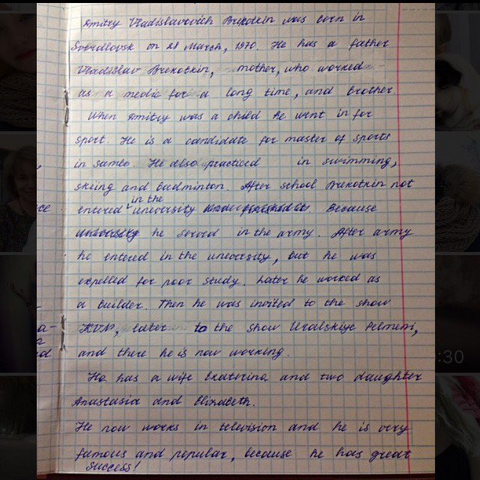 Dmitry Vladislavovich Brekotkin was born in
Sverdlovsk on 28 March, 1970. He has a father
Vladislav Brekotkin, mother, who worked
as a medic for a long time, and brother.
When Dmitry was a child he went in for
sport. He is a candidate for master of sports
in sambo. He also practiced in swimming,
skiing and badminton. After school Brekotkin not
entered in the university. Because
university he served in the army. After army
he entered in the university, but he was
expelled for poor study. Later he worked as
a builder. Then he was invited to the show
KVN, later to the show Uralskiye Pelmeni,
and there he is now working.
He has a wife Ekaterina and two daughter
Anastasia and Elizabeth.
He now works in television and he is very
famous and popular, because he has great
success!
:30